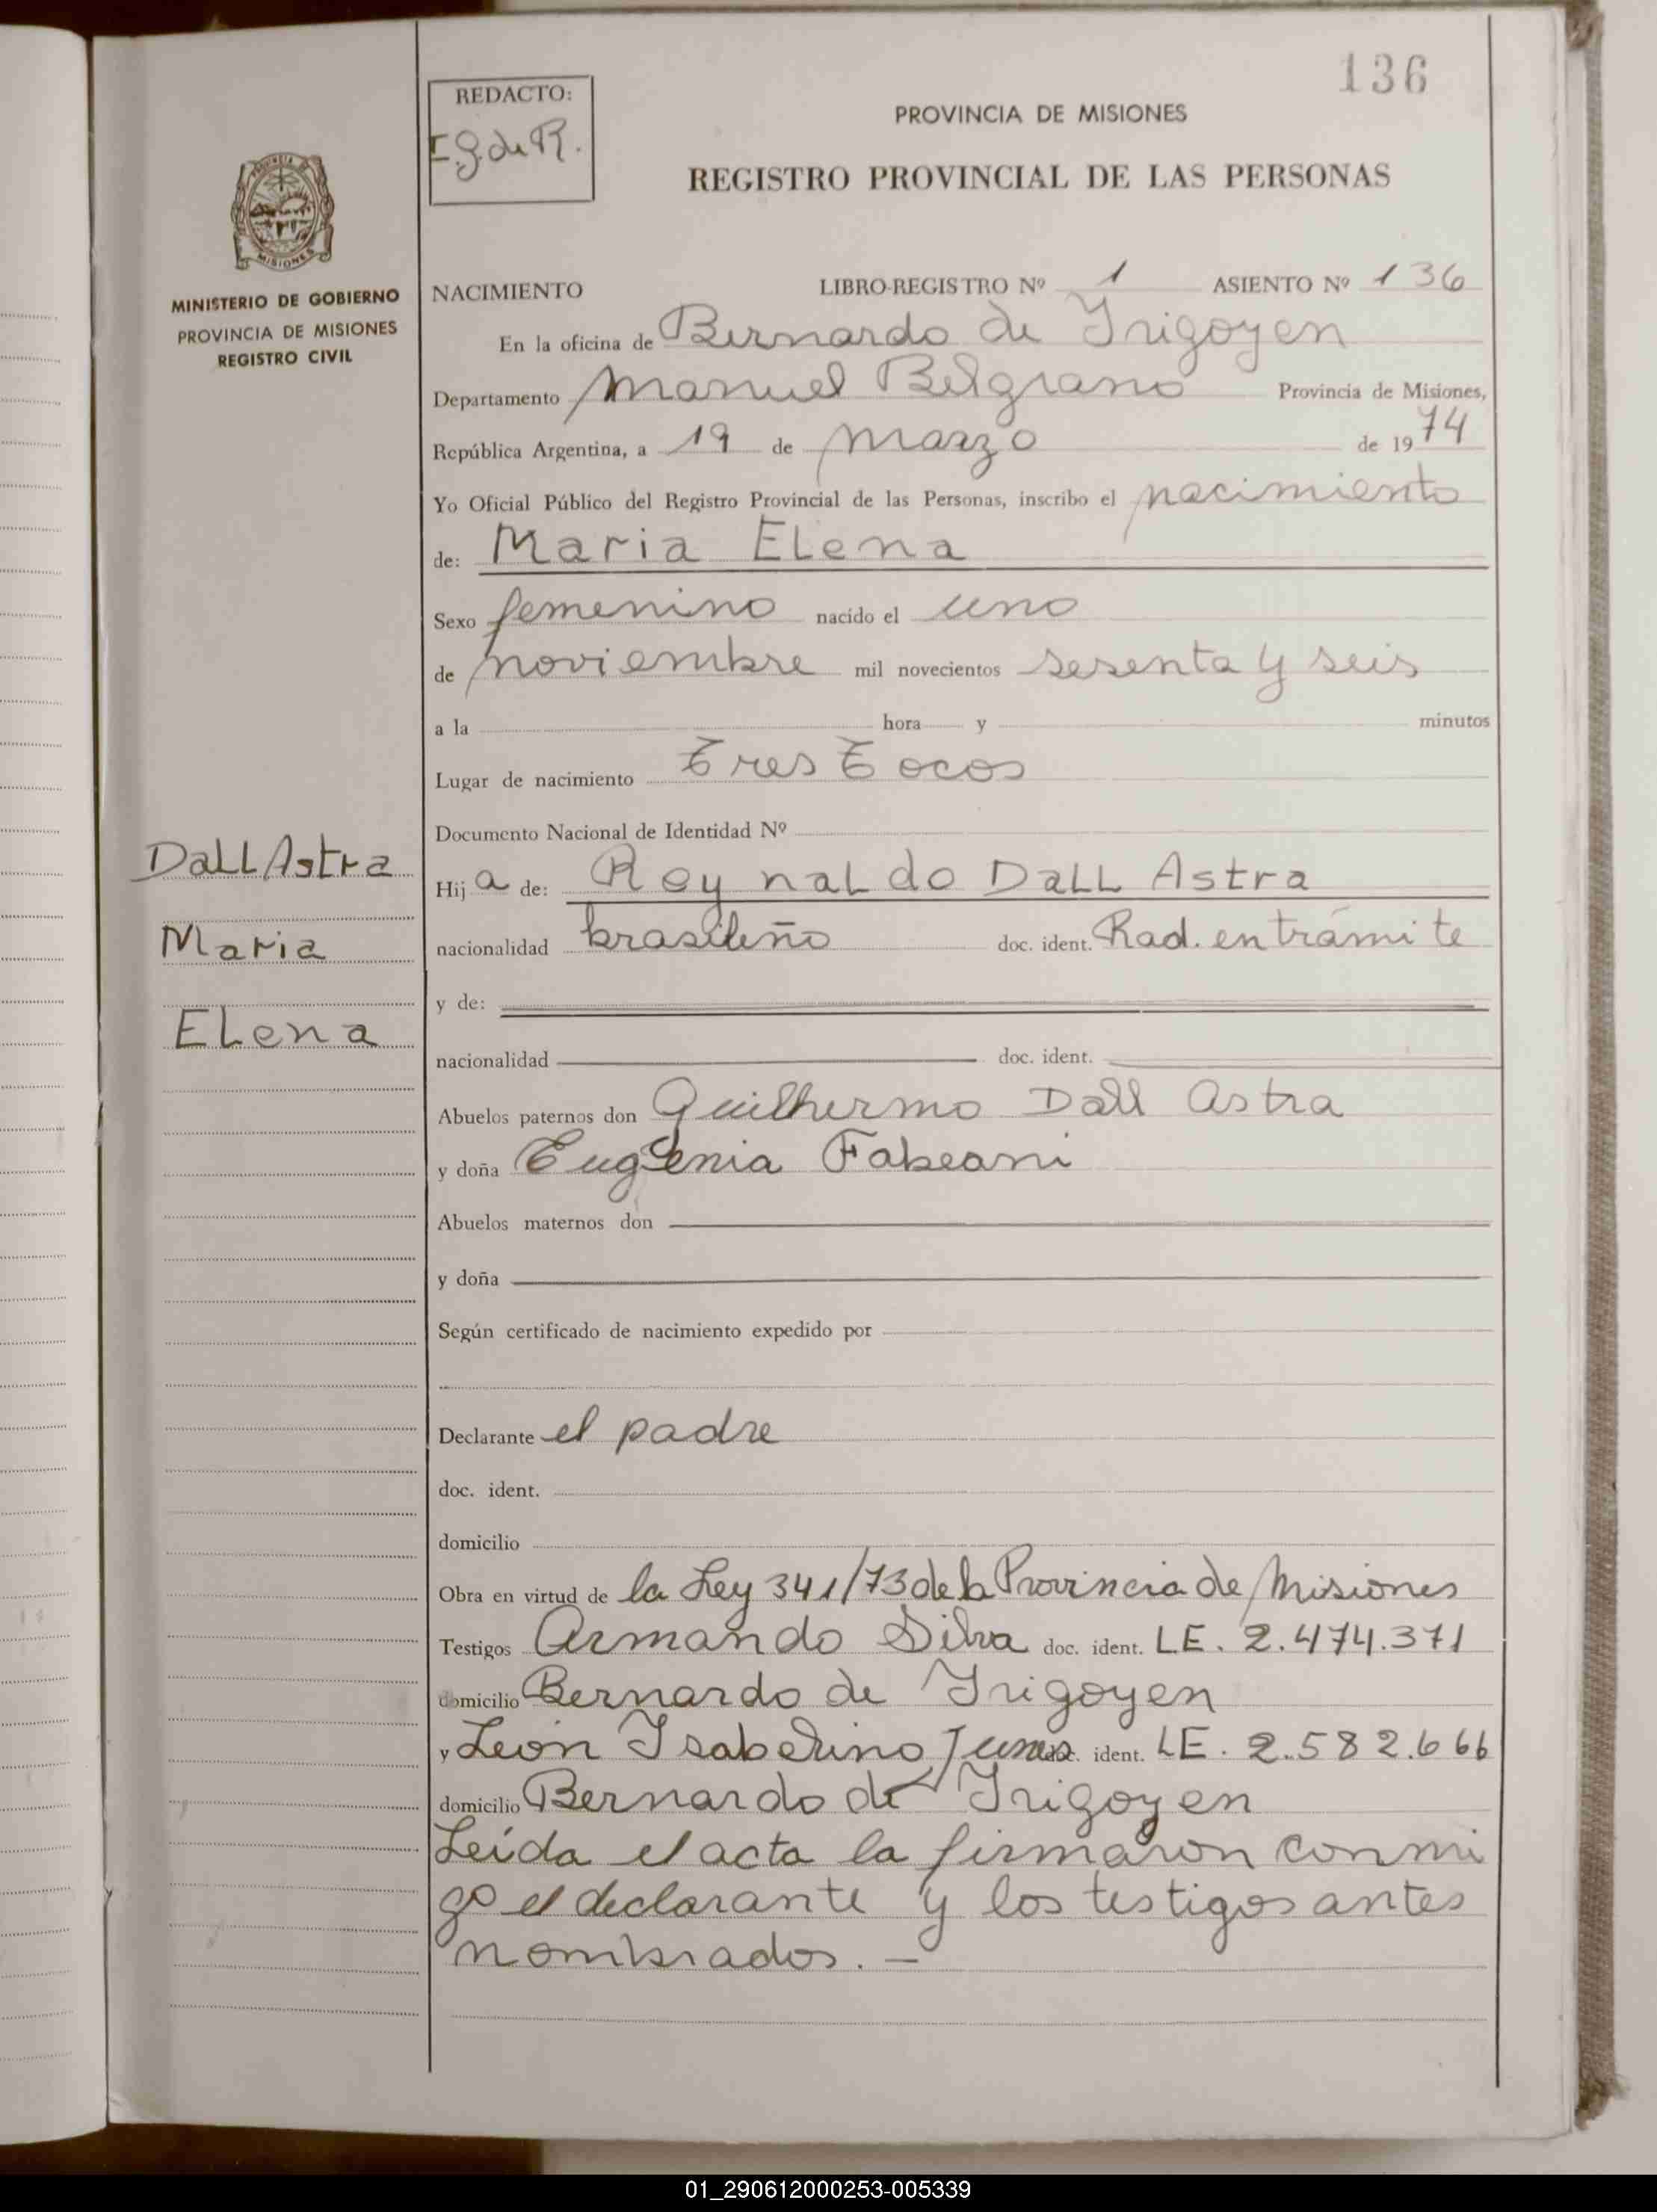 136
REDACTO:
I.G.deR.
PROVINCIA DE MISIONES
REGISTRO PROVINCIAL DE LAS PERSONAS
MISIONES
MINISTERIO DE GOBIERNO
PROVINCIA DE MISIONES
REGISTRO CIVIL
NACIMIENTO LIBRO-REGISTRO Nº 1 ASIENTO Nº 136
En la oficina de Bernardo de Irigoyen
Departamento Manuel Belgrano Provincia de Misiones,
República Argentina, a 19 de marzo de 1974
Yo Oficial Público del Registro Provincial de las Personas, inscribo el nacimiento
de: Maria Elena
Sexo femenino nacido el uno
de noviembre mil novecientos sesenta y seis
a la hora y minutos
Lugar de nacimiento Tres Tocos
Documento Nacional de Identidad Nº
Dall Astra
Maria
Elena
Hij a de: Reynaldo Dall Astra
nacionalidad brasileño doc. ident. Rad. en trámite
y de:
nacionalidad doc. ident.
Abuelos paternos don Guilhermo Dall Astra
y doña Eugenia Fabeani
Abuelos maternos don
y doña
Según certificado de nacimiento expedido por
Declarante el padre
doc. ident.
domicilio
Obra en virtud de la Ley 341/73 de la Provincia de Misiones
Testigos Armando Silva doc. ident. LE. 2.474.371
domicilio Bernardo de Irigoyen
y León Isabelino doc. ident. LE. 2.582.666
domicilio Bernardo de Irigoyen
Leída el acta la firmaron conmi
go el declarante y los testigos antes
nombrados. —
01_290612000253-005339